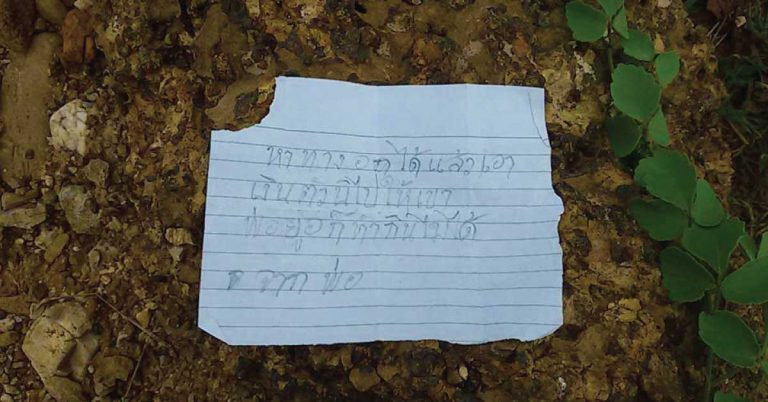 หาทางอดได้แล้วเอา
เงินตัวนี้ไปให้เขา
พ่ออยู่ก็ทำกินไม่ได้
จาก พ่อ